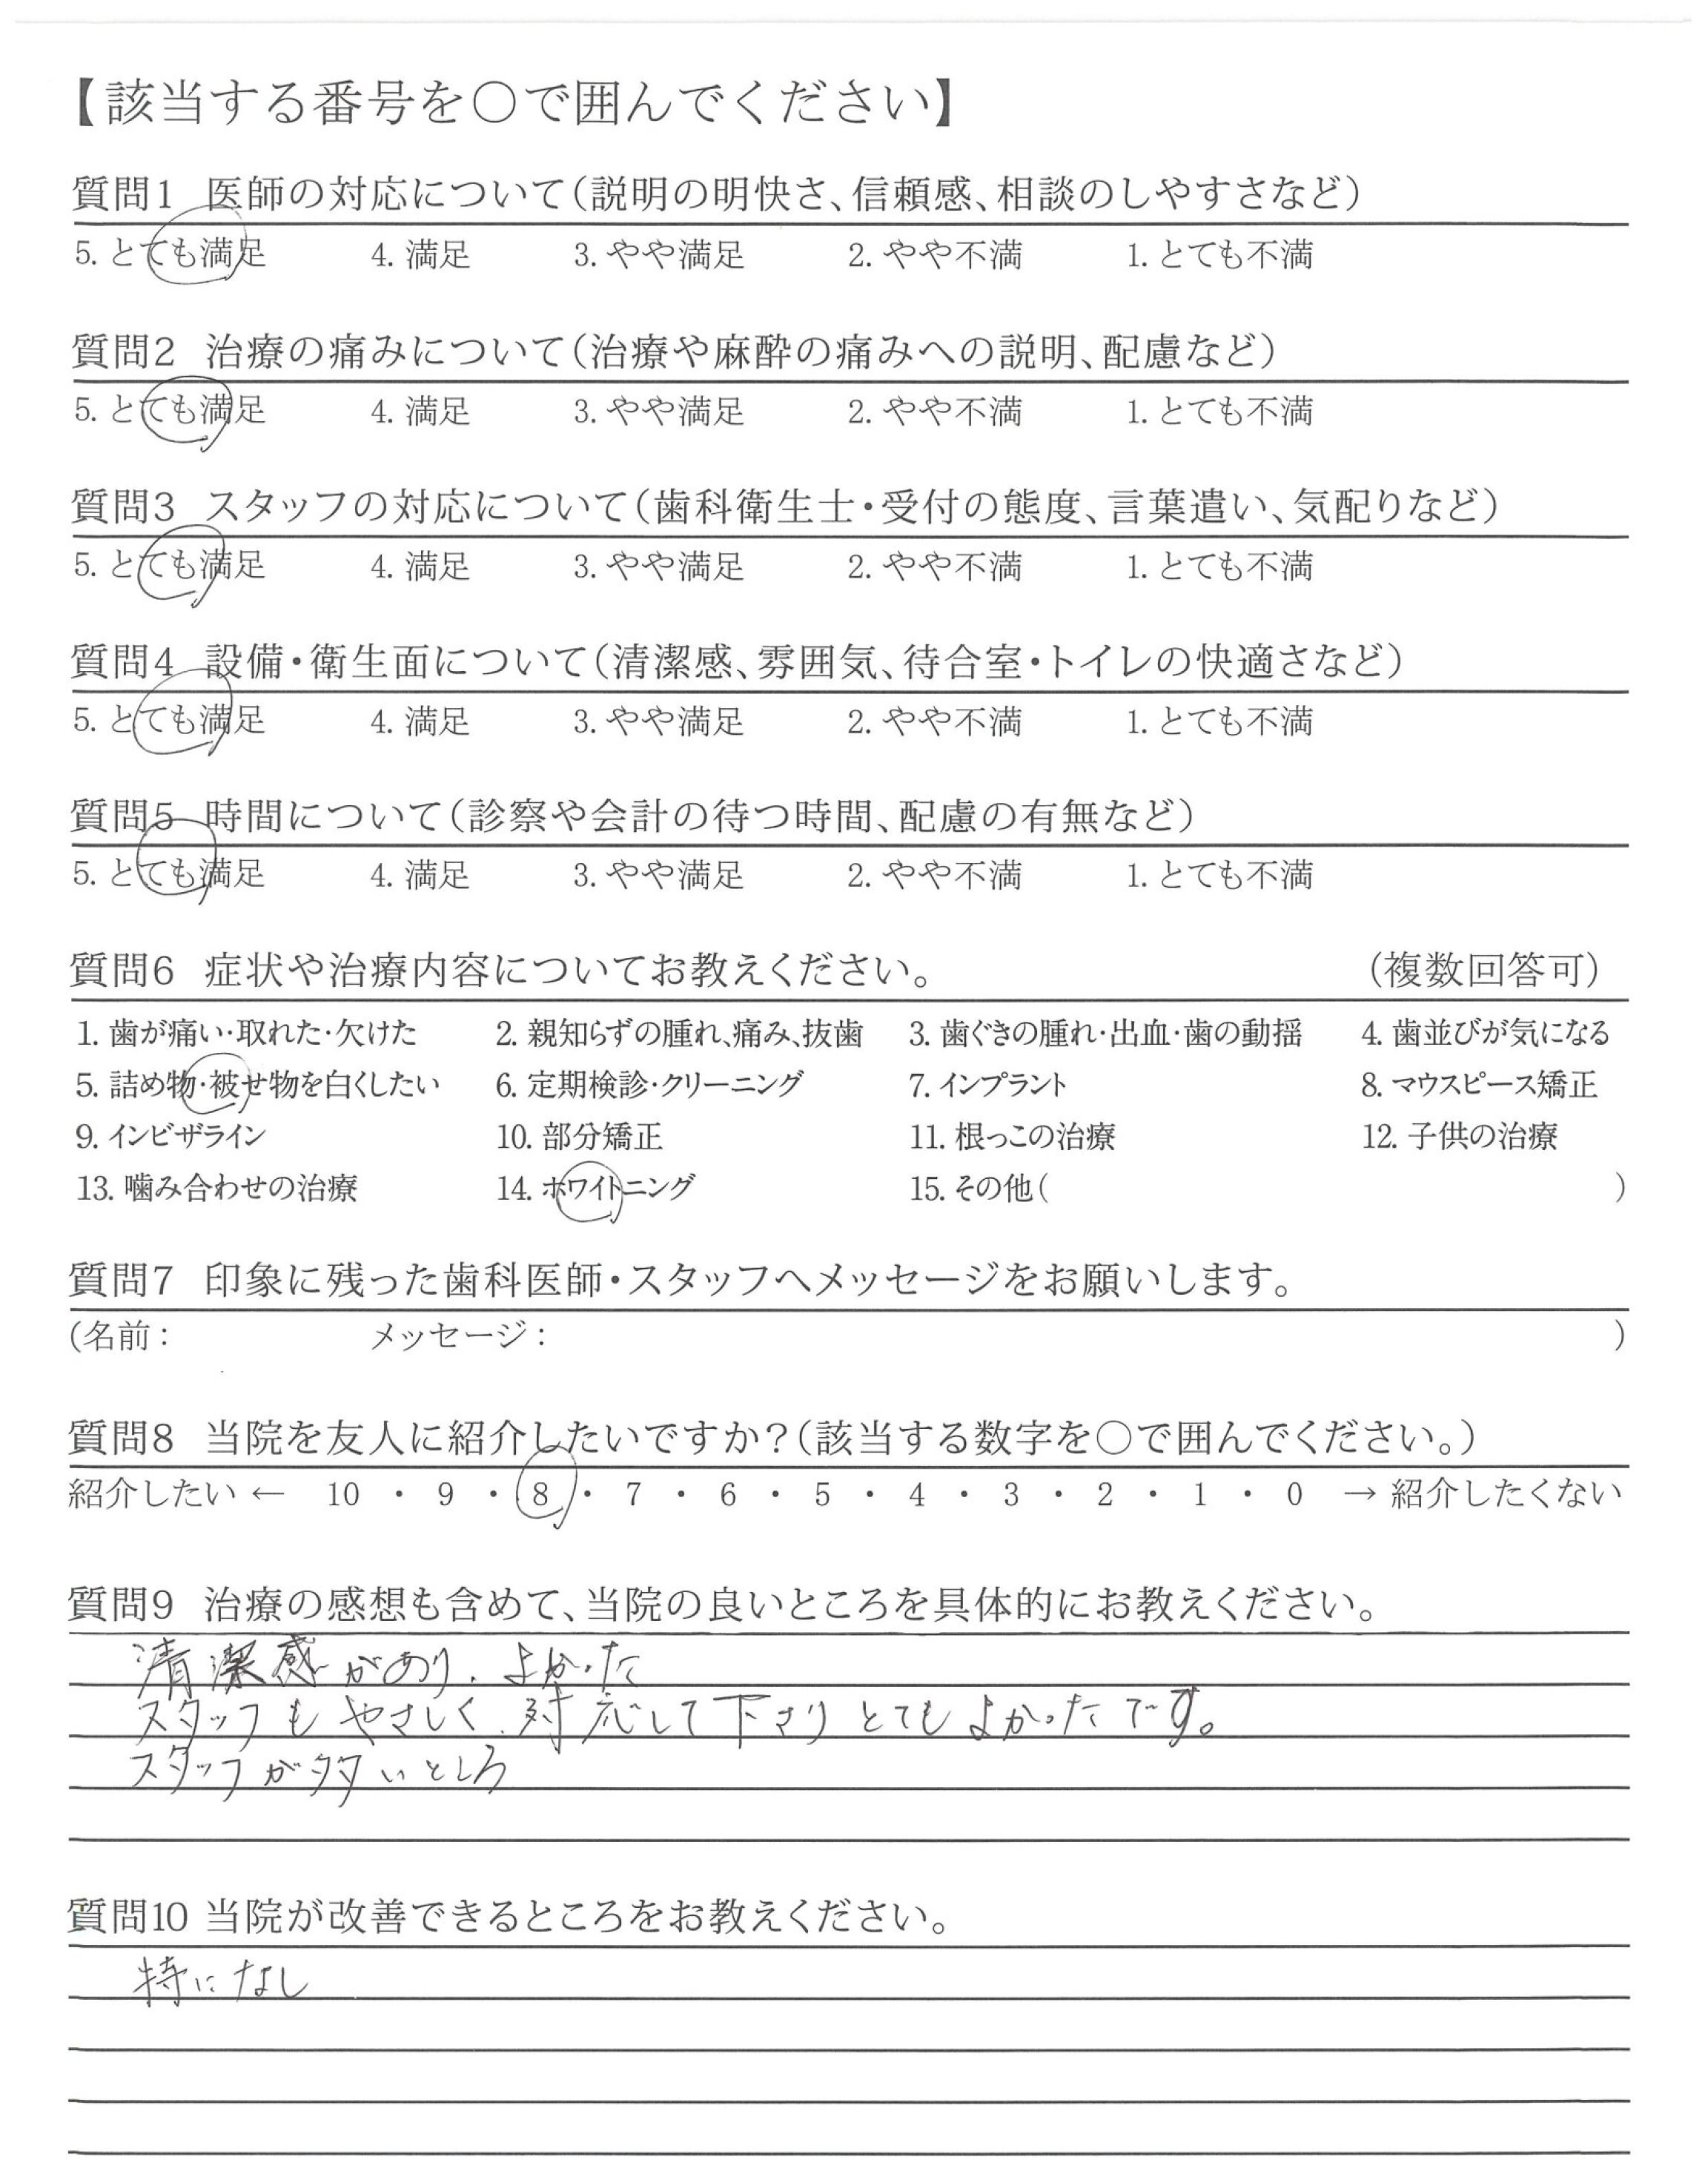 【該当する番号を〇で囲んでください】
質問1 医師の対応について（説明の明快さ、信頼感、相談のしやすさなど）
5. とても満足 4. 満足 3. やや満足 2. やや不満 1. とても不満
質問2 治療の痛みについて（治療や麻酔の痛みへの説明、配慮など）
5. とても満足 4. 満足 3. やや満足 2. やや不満 1. とても不満
質問3 スタッフの対応について（歯科衛生士・受付の態度、言葉遣い、気配りなど）
5. とても満足 4. 満足 3. やや満足 2. やや不満 1. とても不満
質問4 設備・衛生面について（清潔感、雰囲気、待合室・トイレの快適さなど）
5. とても満足 4. 満足 3. やや満足 2. やや不満 1. とても不満
質問5 時間について（診察や会計の待つ時間、配慮の有無など）
5. とても満足 4. 満足 3. やや満足 2. やや不満 1. とても不満
質問6 症状や治療内容についてお教えください。 （複数回答可）
1. 歯が痛い・取れた・欠けた 2. 親知らずの腫れ、痛み、抜歯 3. 歯ぐきの腫れ・出血・歯の動揺 4. 歯並びが気になる
5. 詰め物・被せ物を白くしたい 6. 定期検診・クリーニング 7. インプラント 8. マウスピース矯正
9. インビザライン 10. 部分矯正 11. 根っこの治療 12. 子供の治療
13. 噛み合わせの治療 14. ホワイトニング 15. その他（ ）
質問7 印象に残った歯科医師・スタッフへメッセージをお願いします。
（名前： メッセージ： ）
質問8 当院を友人に紹介したいですか？（該当する数字を〇で囲んでください。）
紹介したい ← 10 ・ 9 ・ 8 ・ 7 ・ 6 ・ 5 ・ 4 ・ 3 ・ 2 ・ 1 ・ 0 → 紹介したくない
質問9 治療の感想も含めて、当院の良いところを具体的にお教えください。
清潔感があり、よかった
スタッフもやさしく、対応して下さりとてもよかったです。
スタッフが多いところ
質問10 当院が改善できるところをお教えください。
特になし